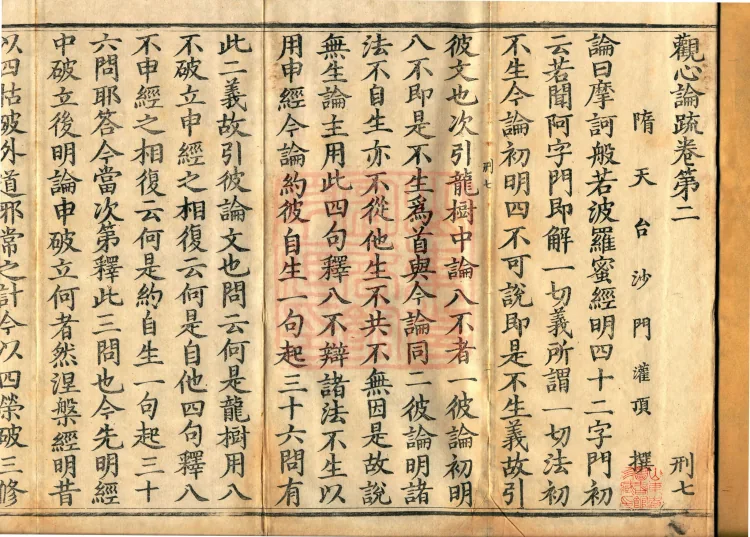 觀心論䟽卷第二
刑七
隋天台沙門灌頂撰
論曰摩訶般若波羅蜜經明四十二字門初
云若聞阿字門即解一切義所謂一切法初
不生今論初明四不可說即是不生義故引
刑七
彼文也次引龍樹中論八不者一彼論初明
八不即是不生爲首與今論同二彼論明諸
法不自生亦不從他生不共不無因是故說
無生論主用此四句釋八不辯諸法不生以
用申經今論約彼自生一句起三十六問有
此二義故引彼論文也問云何是龍樹用八
不破立申經之相復云何是自他四句釋八
不申經之相復云何是約自生一句起三十
六問耶答今當次第釋此三問也今先明經
中破立後明論申破立何者然涅槃經明昔
以四枯破外道邪常之計今以四榮破三修